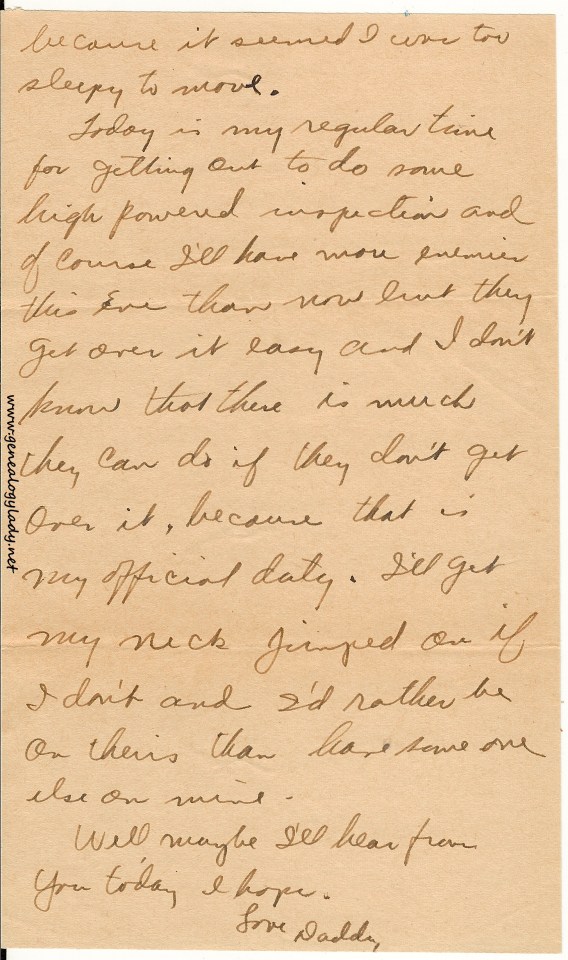 because it seemed I was too
sleepy to move.
Today is my regular time
for getting out to do some
high powered inspection and
of course I'll have more enemies
this Eve than now but they
get over it easy and I don't
know that there is much
they can do if they don't get
over it, because that is
my official duty. I'll get
my neck jumped on if
I don't and I'd rather be
on theirs than have some one
else on mine.
Well maybe I'll hear from
you today I hope.
Love Daddy,
www.genealogylady.net